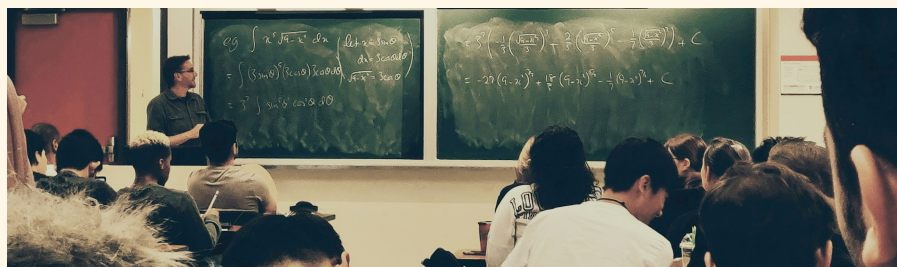 eg ∫ x⁵ √9-x² dx
(let x = 3sinθ
dx = 3cosθ dθ
√9-x² = 3cosθ)
= ∫ (3sinθ)⁵ (3cosθ) 3cosθ dθ
= 3⁷ ∫ sin⁵θ cos²θ dθ
= 3⁷ (-1/3 (√9-x²/3)³ + 2/5 (√9-x²/3)⁵ - 1/7 (√9-x²/3)⁷) + C
= -27 (9-x²)^3/2 + 18/5 (9-x²)^5/2 - 1/7 (9-x²)^7/2 + C